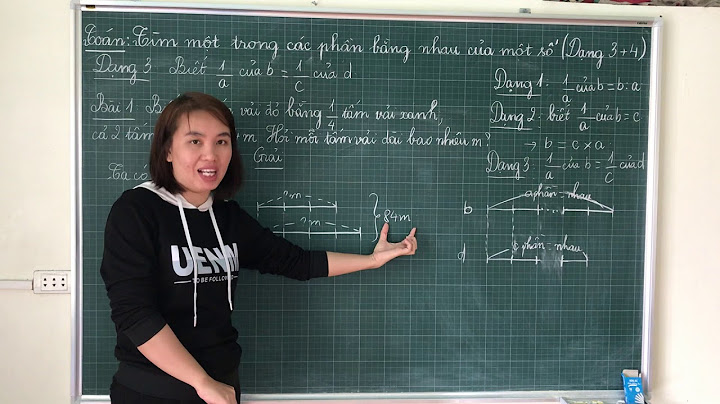 Toán: Tìm một trong các phần bằng nhau của một số (Dạng 3+4)
Dạng 3 Biết 1/a của b = 1/c của d
Bài 1 vải đỏ bằng 1/4 tấm vải xanh,
cả 2 tấm m Hỏi mỗi tấm vải dài bao nhiêu m?
Giải
Ta có
? m
? m
84m
Dạng 1: 1/a của b = b : a
Dạng 2: biết 1/a của b = c
→ b = c × a
Dạng 3: 1/a của b = 1/c của d
b a phần = nhau
d c phần = nhau
UENM
TO BE FOLLOWED